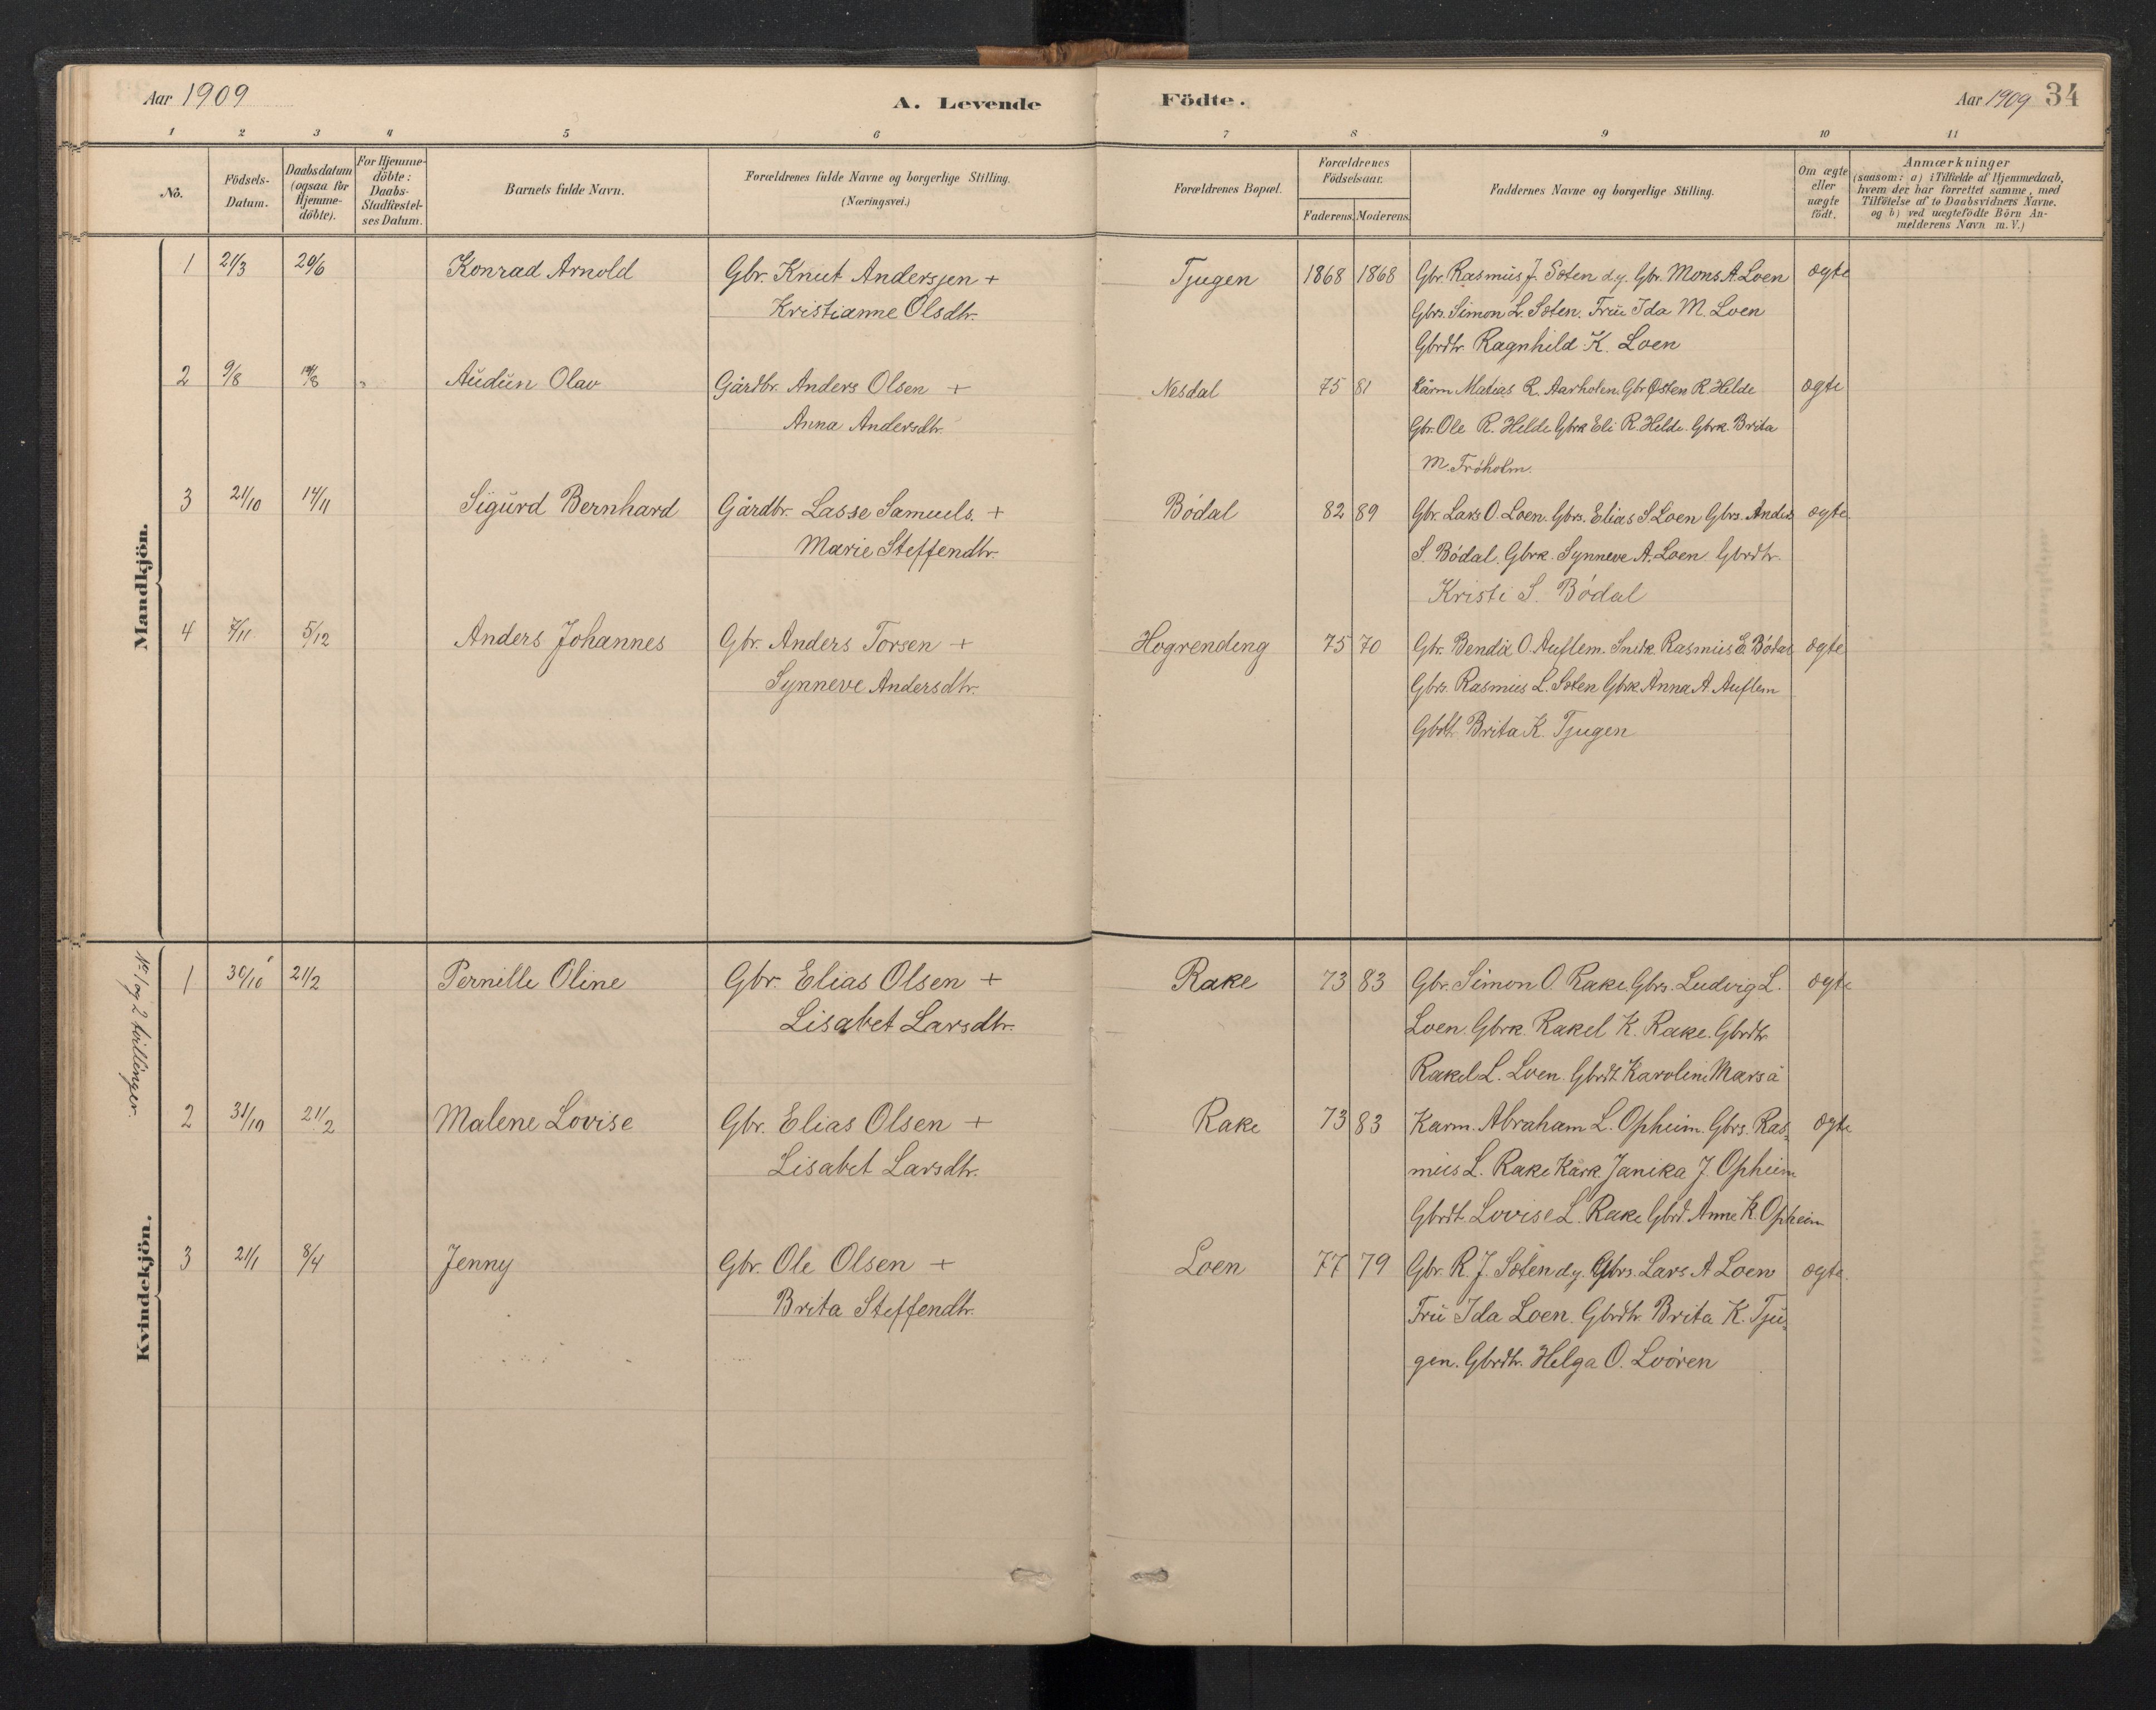 Aar 1909
A. Levende Födte.
Aar 1909 34
1 2 3 4 5 6 7 8 9 10 11
No.
Födsels-Datum.
Daabsdatum (ogsaa for Hjemme-döbte).
For Hjemme-döbte: Daabs-Stadfæstel-ses Datum.
Barnets fulde Navn.
Forældrenes fulde Navne og borgerlige Stilling. (Næringsvei.)
Forældrenes Bopæl.
Forældrenes Födselsaar.
Faderens. Moderens.
Faddernes Navne og borgerlige Stilling.
Om ægte eller uægte födt.
Anmærkninger
(saasom: a) i Tilfælde af Hjemmedaab,
hvem der har forrettet samme, med
Tilföielse af to Daabsvidners Navne.
og b) ved uægtefödte Börn An-
melderens Navn m. V.)
Mandkjön.
1 21/3 20/6 Konrad Arnold Gbr. Knut Andersjen + Tjugen 1868 1868 Gbr. Rasmus J. Sæten d.y. Gbr. Mons A. Loen ægte
Kristianne Olsdtr. Gbrs. Simon L. Sæten. Fru Ida M. Loen
Gbrdtr. Ragnhild K. Loen
2 9/8 /8 " Audun Olav Gårdbr. Anders Olsen + Nesdal 75 81 Matias R. Aarholen. Gbr Østen R. Helde ægte
Anna Andersdtr. Gbr. Ole R. Helde Gbrk Eli R. Helde. Gbrk. Brita
M. Tröholm.
3 21/10 14/11 Sigurd Bernhard Gårdbr. Lasse Samuels. + Bödal 82 89 Gbr. Lars O. Loen. Gbrs. Elias S Loen Gbrs. Anders ægte
Marie Steffendtr. S. Bödal. Gbrk. Synneve A. Loen Gbrdtr.
Kristi S. Bödal
4 7/11 5/12 Anders Johannes Gbr. Anders Torsen + Hogrending 75 70 Gbr. Bendix O. Auflem. Snidk. Rasmus E. Bödal ægte
Synneve Andersdtr. Gbrs. Rasmus L. Sæten Gbrk. Anna A. Auflem
Gbrdt. Brita K. Tjugen
Kvindekjön.
No 1 og 2 tvillinger.
1 30/10 21/2 Pernille Oline Gbr. Elias Olsen + Rake 73 83 Gbr. Simon O. Rake. Gbrs. Ludvig L. ægte
Lisabet Larsdtr. Loen. Gbrk. Rakel K. Rake. Gbrdtr.
Rakel L. Loen. Gbrdt. Karoline Marså
2 31/10 21/2 Malene Lovise Gbr. Elias Olsen + Rake 73 83 Karm. Abraham L. Opheim. Gbrs. Ras- ægte
Lisabet Larsdtr. mus L. Rake Kårk Janika J. Opheim
Gbrdt. Lovise L. Rake Gbrd. Anne K. Opheim
3 21/1 8/4 Jenny Gbr. Ole Olsen + Loen 77 79 Gbr. R. J. Sæten d.y. Gbrs. Lars A Loen ægte.
Brita Steffendtr. Fru Ida Loen. Gbrdtr. Brita K. Tju-
gen. Gbrdtr. Helga O. Lvören